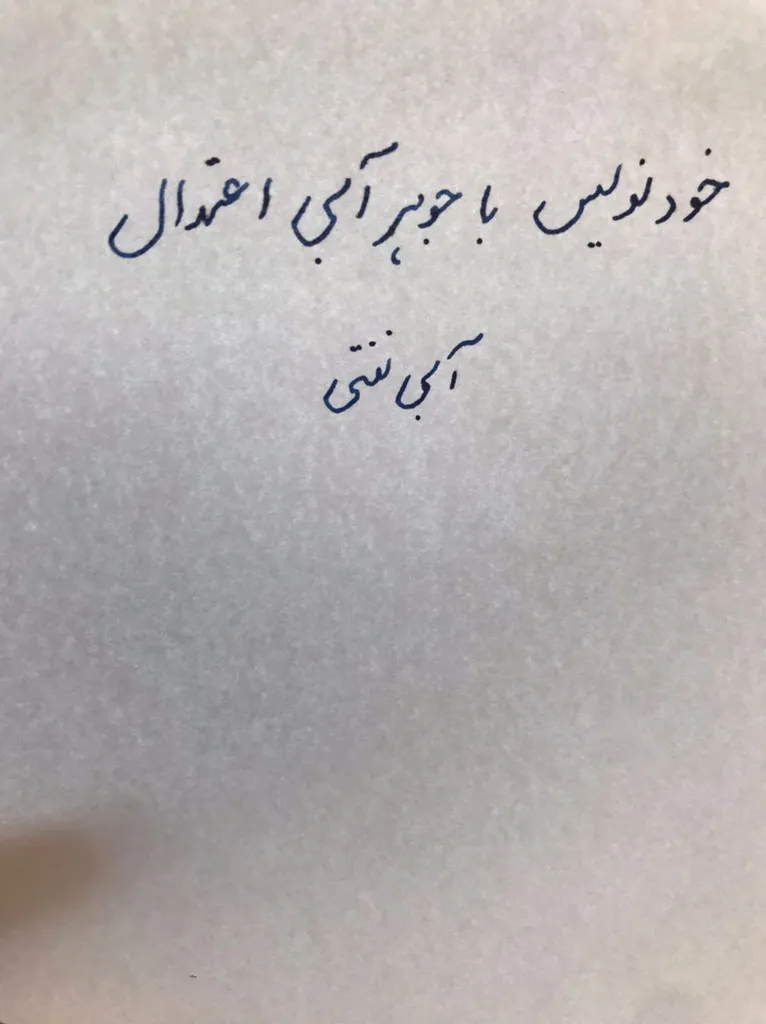 خودنویس با جوهر آبی اعتدال
آبی نفتی